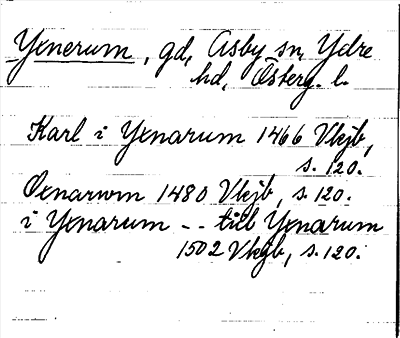 Yxnerum, gd, Asby sn, Ydre
hd, Österg. l.
Karl i Yxnarum 1466 Vkjb,
s. 120.
Oxnarwm 1480 Vkjb, s. 120.
i Yxnarum -- till Yxnarum
1502 Vkjb, s. 120.